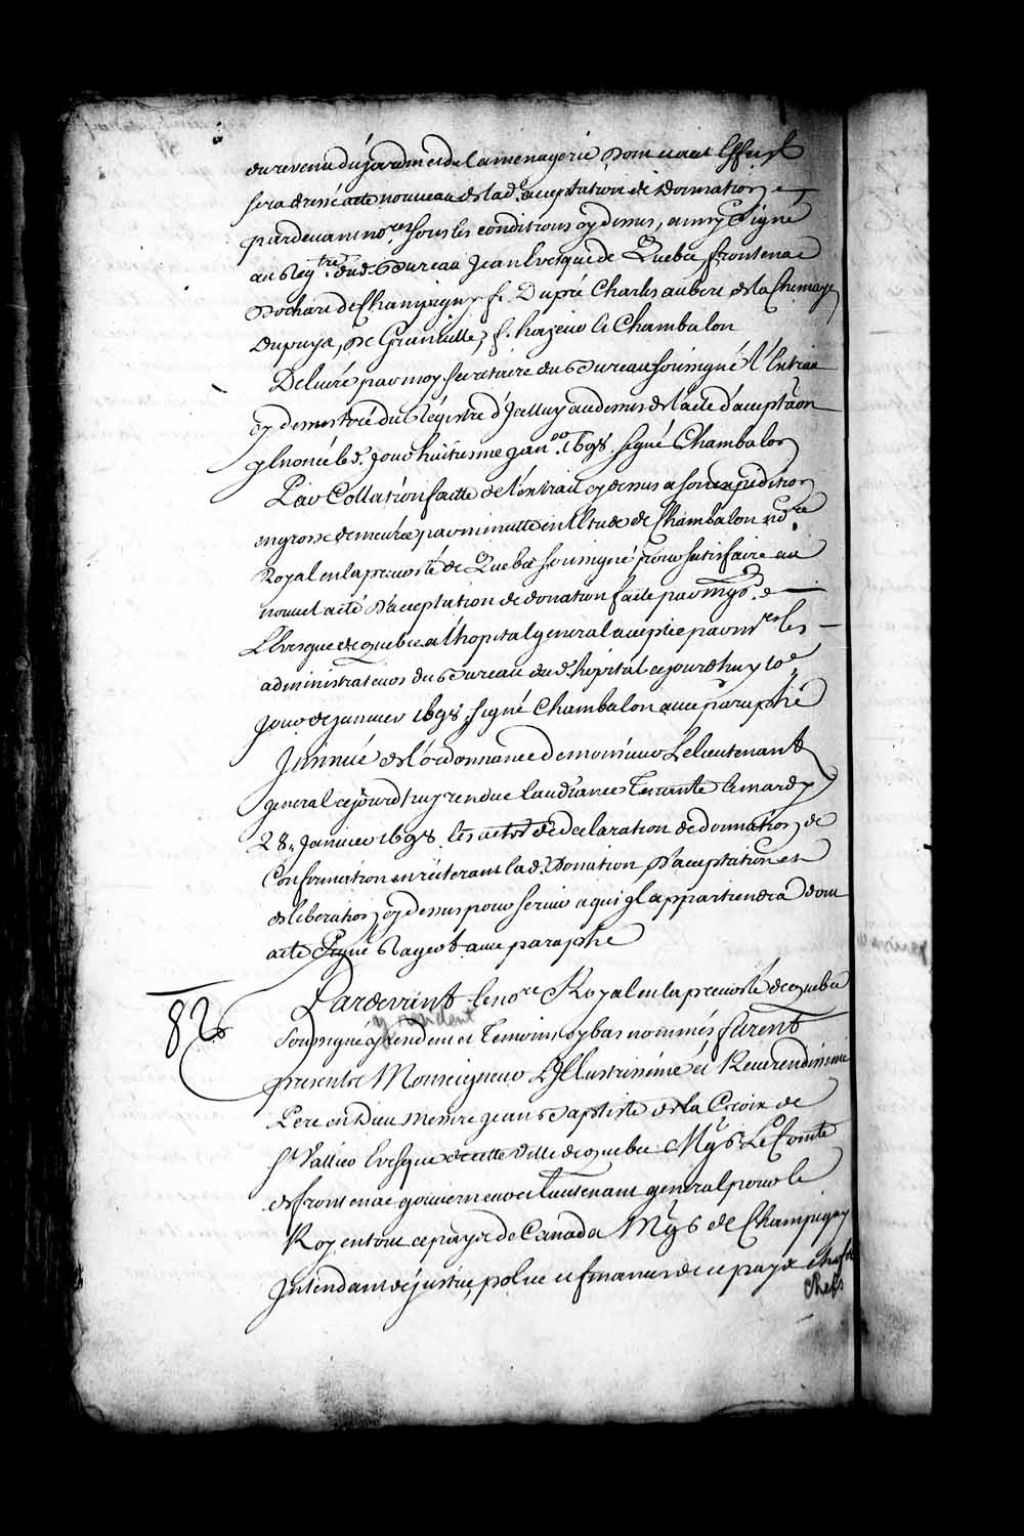 du revenu du jardin et de la menagerie Pour auec Effect
sera dressé acte nouveau de lad.e acceptation de donation
pardeuant no.re sous les conditions cy dessus, ainsy Signé
au Reg.tre dud. Bureau Jean Evesque de Quebec, frontenac
Bochart de Champigny f. Dupré Charles aubert de la Chenaye
Dupuys, De Granuille, f. hazeur le Chambalon
Deliuré par moy secretaire du Bureau soussigné l'Extrait
cy dessus tiré du Régistre d'Jcelluy au dessus de l'acte d'acceptãon
y Enoncé led. Jour huitiesme janv. 1698. signé Chambalon
Par Collation faitte de l'extrait cy dessus a son expedition
en grosse demeurée pour minutte en l'Etude de Chambalon no.re
Royal en la preuosté de Quebec soussigné pour satisfaire au
nouuel acte d'acceptation de donation faite par mgr.
L'Evesque de quebec a l'hopital general acceptée par mrs les
administrateurs du Bureau dud. hôpital cejourdhuy 10e
Jour de januier 1698, signé Chambalon auec paraphe
Jnsinué de l'ordonnance de monsieur Le lieutenant
general cejourdhuy rendue l'audiance Tenante le mardy
28. Januier 1698. les actes de declaration de donnation, de
Confirmation en reiterant lad. Donation, d'acceptation et
deliberation cy dessus pour seruir a qui il appartiendra dont
acte Signé Rageot auec paraphe
82
Pardevant le no.re Royal en la preuosté de quebec
y resident
soussigné y residens et Temoins cy bas nommés furent
presents Monseigneur L'Jllustrissime et Reuerendissime
Pere en Dieu messire jean Baptiste de la Croix de
St Vallier Evesque de cette Ville de quebec Mgr Le Comte
de frontenac gouuerneur et lieutenant general pour le
Roy en tout ce pays de Canada Mgr de Champigny
Jntendant de justice, police et finances de ce pays chefs
Chefs